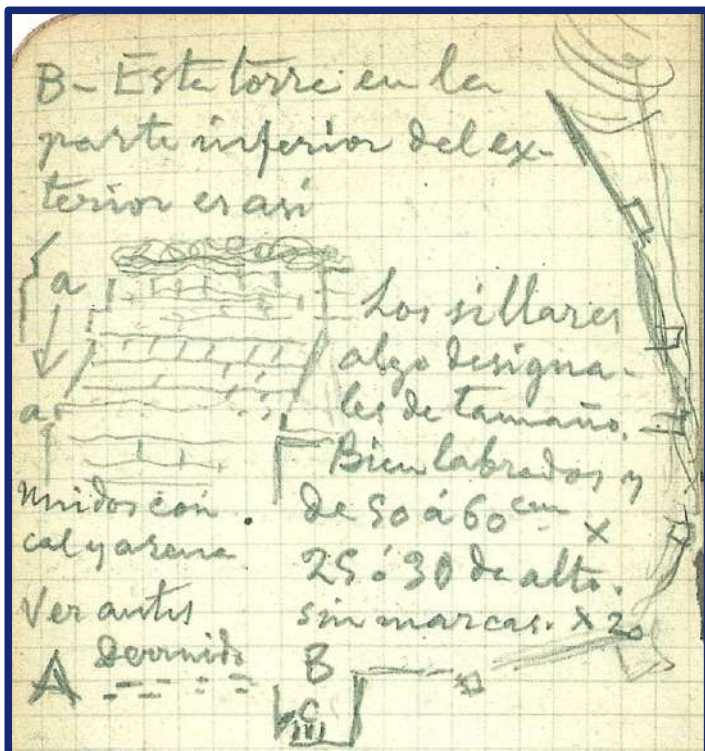 B- Este torre en la
parte inferior del ex-
terior es así
a
a
Los sillares
algo desigua-
les de tamaño.
Bien labrados y
de 50 á 60 cm x
25 ó 30 de alto.
sin marcas. x 20
unidos con
cal y arena
Ver antes
Derruido
A
B
C